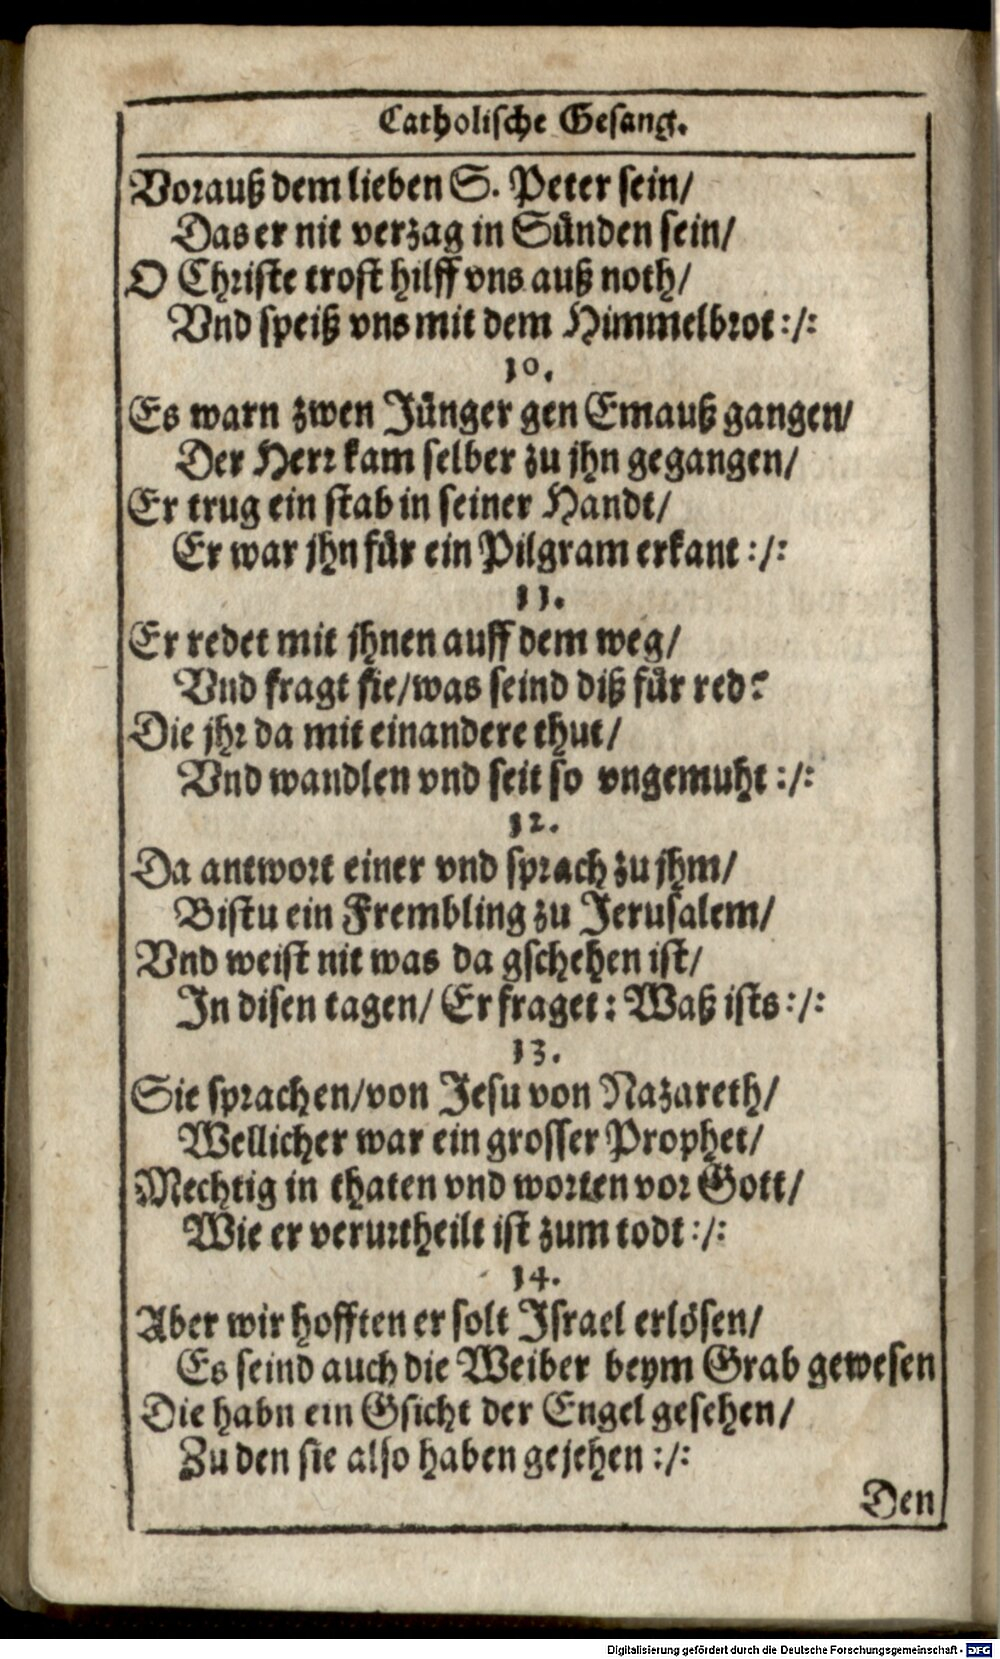 Catholische Gesang.
Vorauß dem lieben S. Peter sein/
Das er nit verzag in Sünden sein/
O Christe trost hilff vns auß noth/
Vnd speiß vns mit dem Himmelbrot :/:
10.
Es warn zwen Jünger gen Emauß gangen/
Der Herr kam selber zu jhn gegangen/
Er trug ein stab in seiner Handt/
Er war jhn für ein Pilgram erkant :/:
11.
Er redet mit jhnen auff dem weg/
Vnd fragt sie/was seind diß für red?
Die jhr da mit einandere thut/
Vnd wandlen vnd seit so vngemuht :/:
12.
Da antwort einer vnd sprach zu jhm/
Bistu ein Frembling zu Jerusalem/
Vnd weist nit was da gschehen ist/
In disen tagen/ Er fraget: Waß ists :/:
13.
Sie sprachen/von Jesu von Nazareth/
Wellicher war ein grosser Prophet/
Mechtig in thaten vnd worten vor Gott/
Wie er verurtheilt ist zum todt :/:
14.
Aber wir hofften er solt Israel erlösen/
Es seind auch die Weiber beym Grab gewesen
Die habn ein Gsicht der Engel gesehen/
Zu den sie also haben gejehen :/:
Den
Digitalisierung gefördert durch die Deutsche Forschungsgemeinschaft - DFG